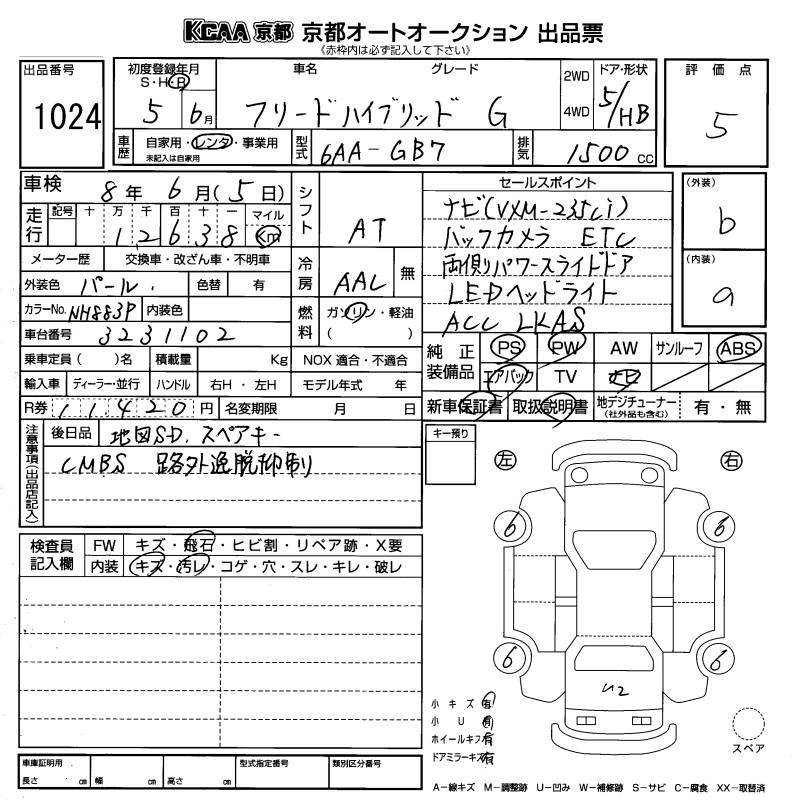 KCAA 京都 京都オートオークション 出品票
《赤枠内は必ず記入して下さい》
出品番号 1024
初度登録年月 S・H・R 5 6月
車名 グレード フリードハイブリッド G
2WD 4WD
ドア・形状 5/HB
評価点 5
車歴 自家用・レンタ・事業用 未記入は自家用
型式 6AA-GB7
排気 1500 CC
車検 8年 6月(5日)
走行 記号 十 万 千 百 十 一 マイル Km
1 2 6 3 8
シフト AT
メーター歴 交換車・改ざん車・不明車
外装色 パール. 色替 有
冷房 AAC 無
カラーNo. NH883P 内装色
燃料 ガソリン・軽油 ( )
車台番号 3231102
乗車定員 ( )名 積載量 Kg NOX 適合・不適合
輸入車 ディーラー・並行 ハンドル 右H・左H モデル年式 年
R券 11420円 名変期限 月 日
セールスポイント
ナビ(VXM-235Ci)
バックカメラ ETC
両側パワースライドドア
LEDヘッドライト
ACC LKAS
(外装) b
(内装) a
純正装備品 PS PW AW サンルーフ ABS
エアバック TV ナビ
新車保証書 取扱説明書 地デジチューナー (社外品も含む) 有・無
注意事項(出品店記入)
後日品 地図SD. スペアキー
CMBS 路外逸脱抑制
キー預り
検査員記入欄
FW キズ・飛石・ヒビ割・リペア跡・X要
内装 キズ・汚レ・コゲ・穴・スレ・キレ・破レ
左 右
6 6
6 6
U2
小キズ 有
小U 有
ホイールキズ 有
ドアミラーキズ 有
スペア
車庫証明用 長さ cm 幅 cm 高さ cm
型式指定番号 類別区分番号
A-線キズ M-調整跡 U-凹み W-補修跡 S-サビ C-腐食 XX-取替済